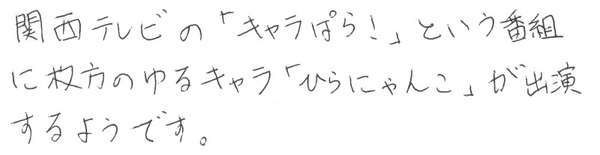 関西テレビの「キャラぱら!」という番組
に枚方のゆるキャラ「ひらにゃんこ」が出演
するようです。